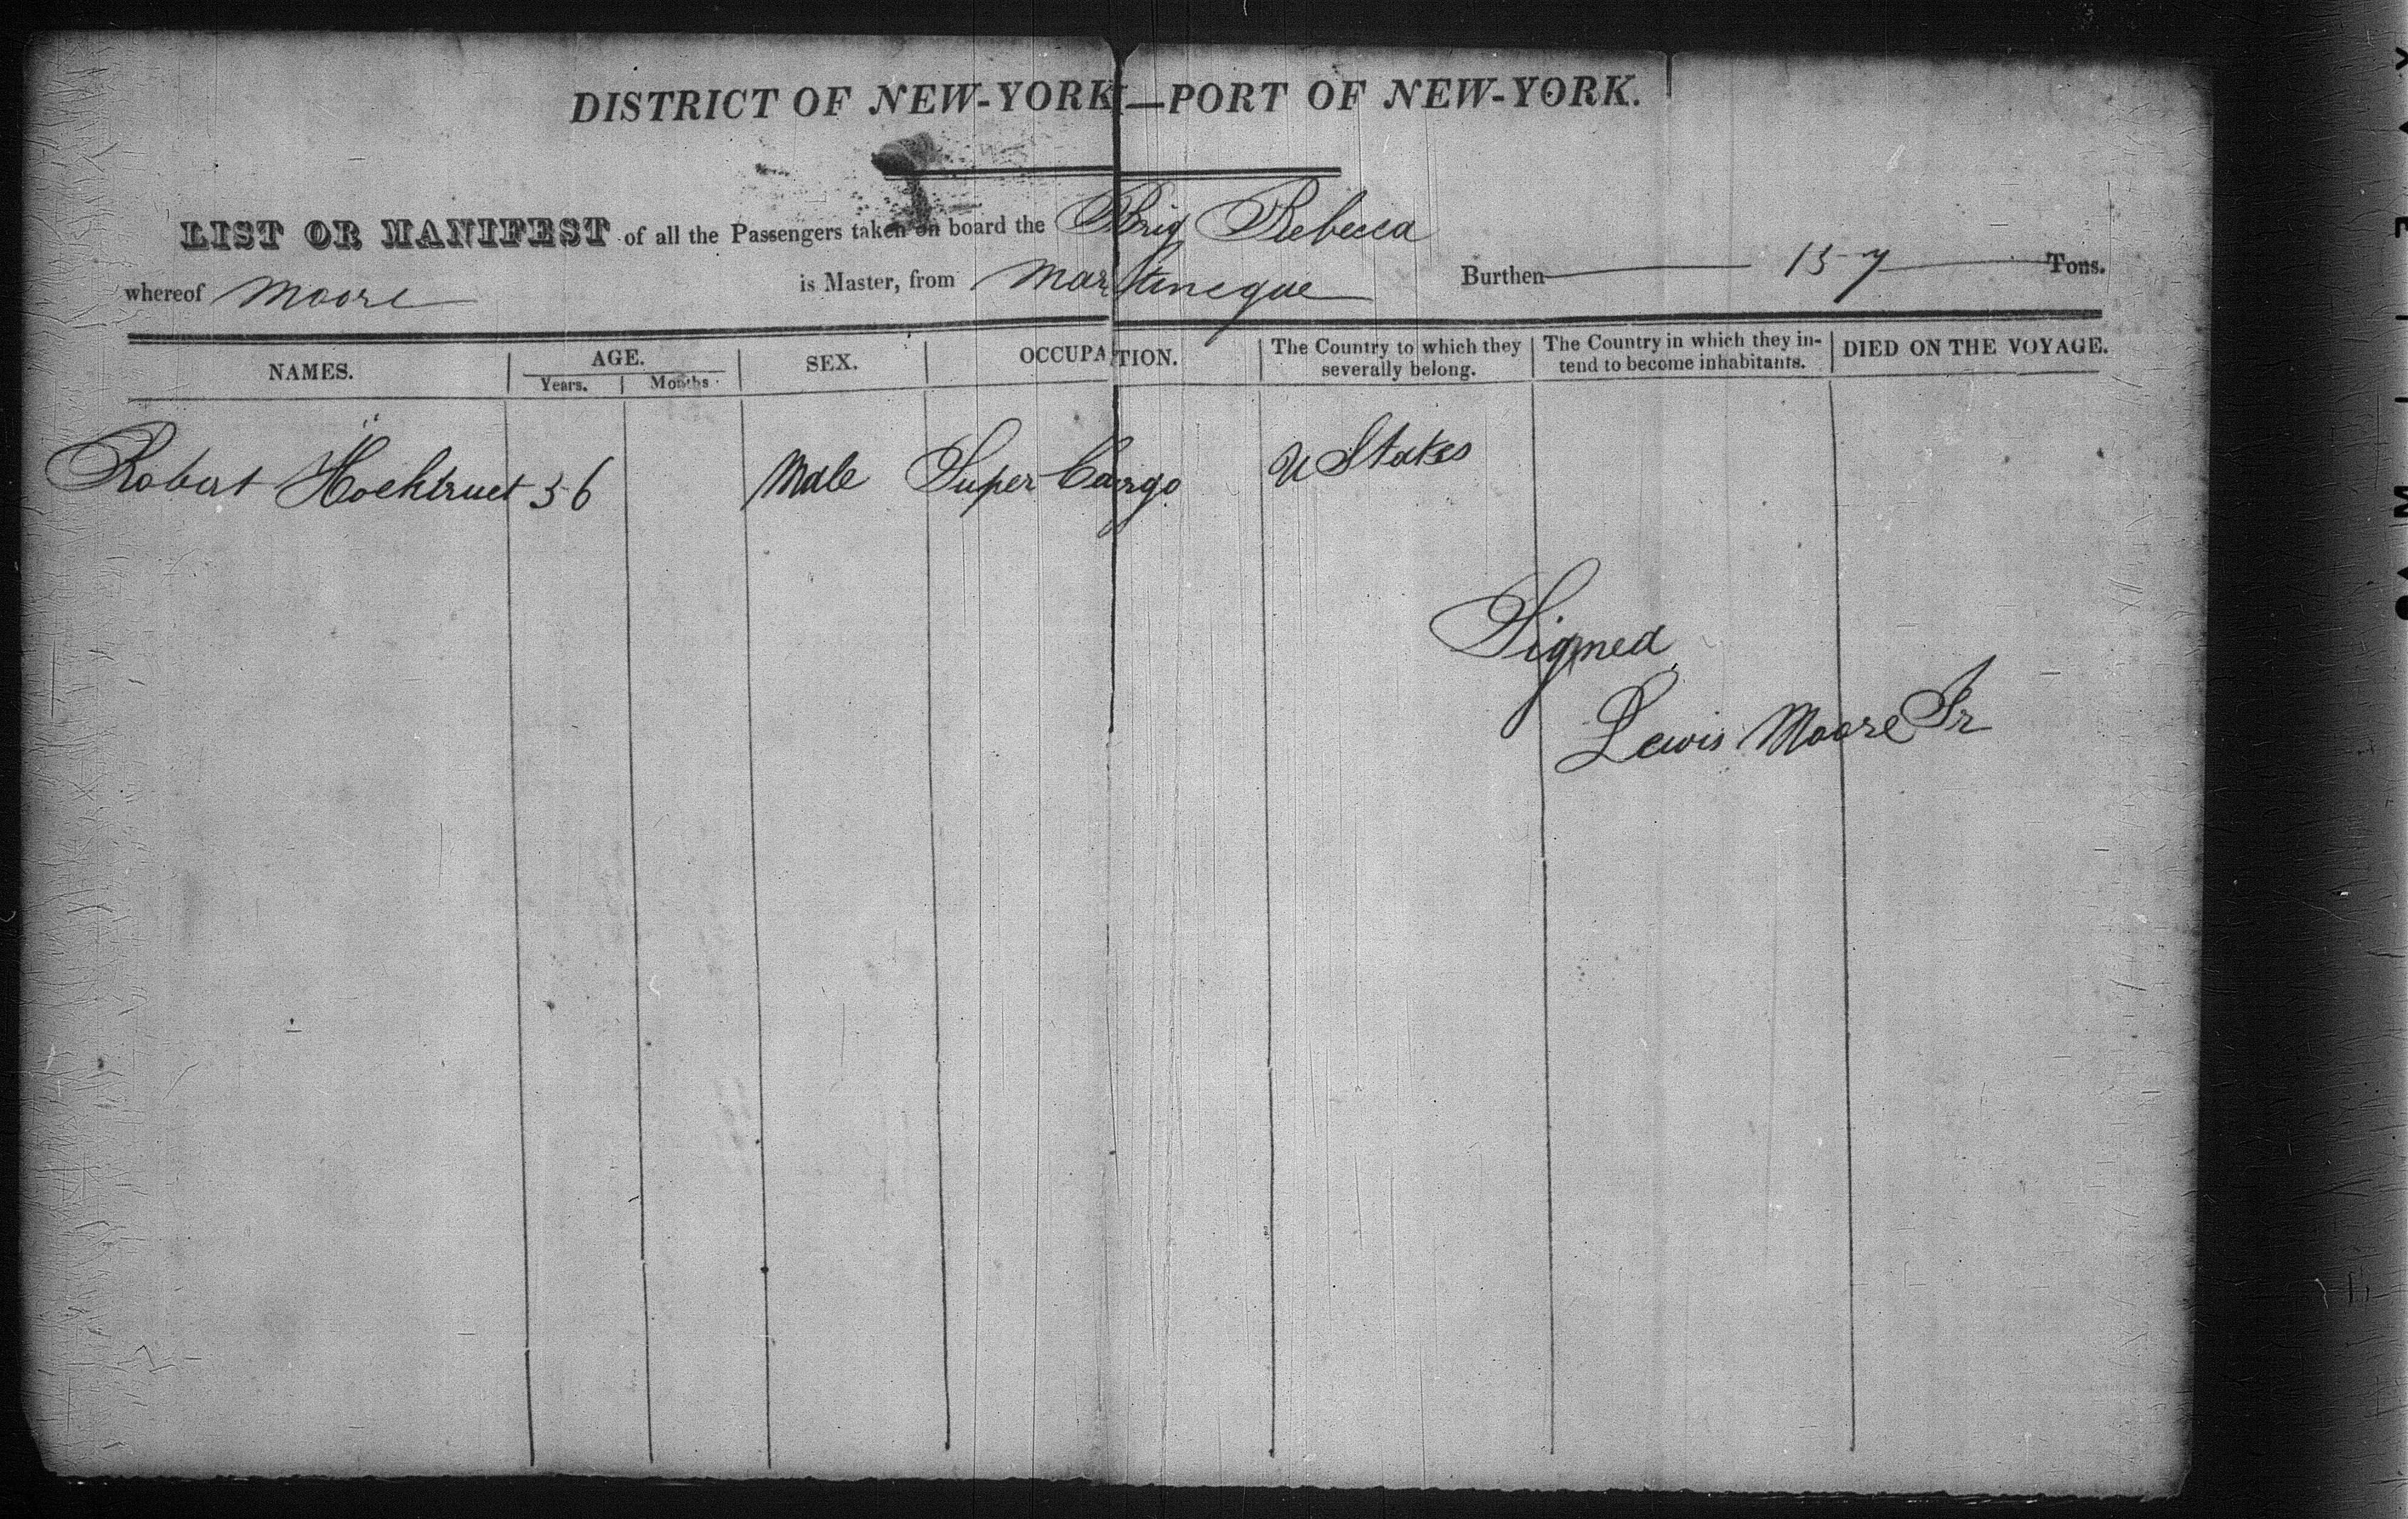 DISTRICT OF NEW-YORK—PORT OF NEW-YORK.
LIST OR MANIFEST of all the Passengers taken on board the Brig Rebecca
whereof Moore is Master, from Martineque Burthen 157 Tons.
NAMES. AGE. Years. Months. SEX. OCCUPATION. The Country to which they severally belong. The Country in which they intend to become inhabitants. DIED ON THE VOYAGE.
Robert 36 Male Super Cargo U States
Signed
Lewis Moore Jr